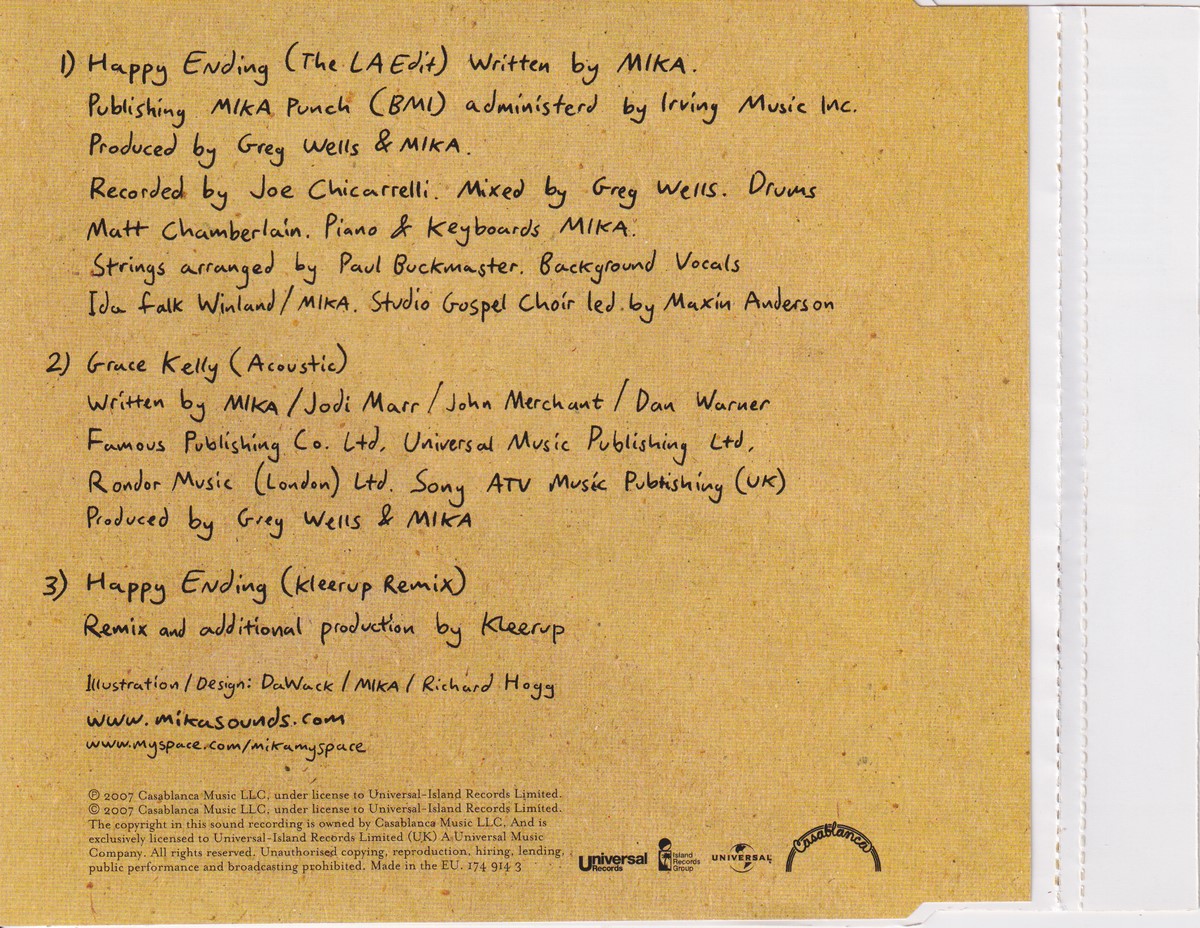 1) Happy Ending (The LA Edit) Written by MIKA.
Publishing MIKA Punch (BMI) administerd by Irving Music Inc.
Produced by Greg Wells & MIKA.
Recorded by Joe Chicarrelli. Mixed by Greg Wells. Drums
Matt Chamberlain. Piano & Keyboards MIKA.
Strings arranged by Paul Buckmaster. Background Vocals
Ida falk Winland/MIKA. Studio Gospel Choir led by Maxin Anderson
2) Grace Kelly (Acoustic)
Written by MIKA/Jodi Marr/John Merchant/Dan Warner
Famous Publishing Co. Ltd, Universal Music Publishing Ltd,
Rondor Music (London) Ltd. Sony ATV Music Publishing (UK)
Produced by Greg Wells & MIKA
3) Happy Ending (Kleerup Remix)
Remix and additional production by Kleerup
Illustration/Design: DaWack/MIKA/Richard Hogg
www.mikasounds.com
www.myspace.com/mikamyspace
℗ 2007 Casablanca Music LLC, under license to Universal-Island Records Limited.
© 2007 Casablanca Music LLC, under license to Universal-Island Records Limited.
The copyright in this sound recording is owned by Casablanca Music LLC. And is
exclusively licensed to Universal-Island Records Limited (UK) A Universal Music
Company. All rights reserved. Unauthorised copying, reproduction, hiring, lending,
public performance and broadcasting prohibited. Made in the EU. 174 914 3
Universal Records
Island Records Group
UNIVERSAL
Casablanca